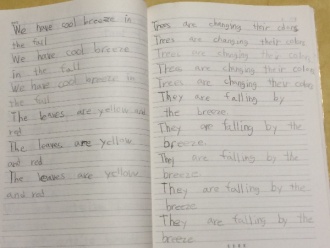 We have cool breeze in
the fall
We have cool breeze
in the fall
We have cool breeze in
the fall
The leaves are yellow and
red
The leaves are yellow
and red
The leaves are yellow
and red
Trees are changing their colors
Trees are changing their colors
Trees are changing their colors
Trees are changing their colors
Trees are changing their colors
They are falling by
the breeze
They are falling by the
breeze
They are falling by the
breeze
They are falling by the
breeze
They are falling by the
breeze